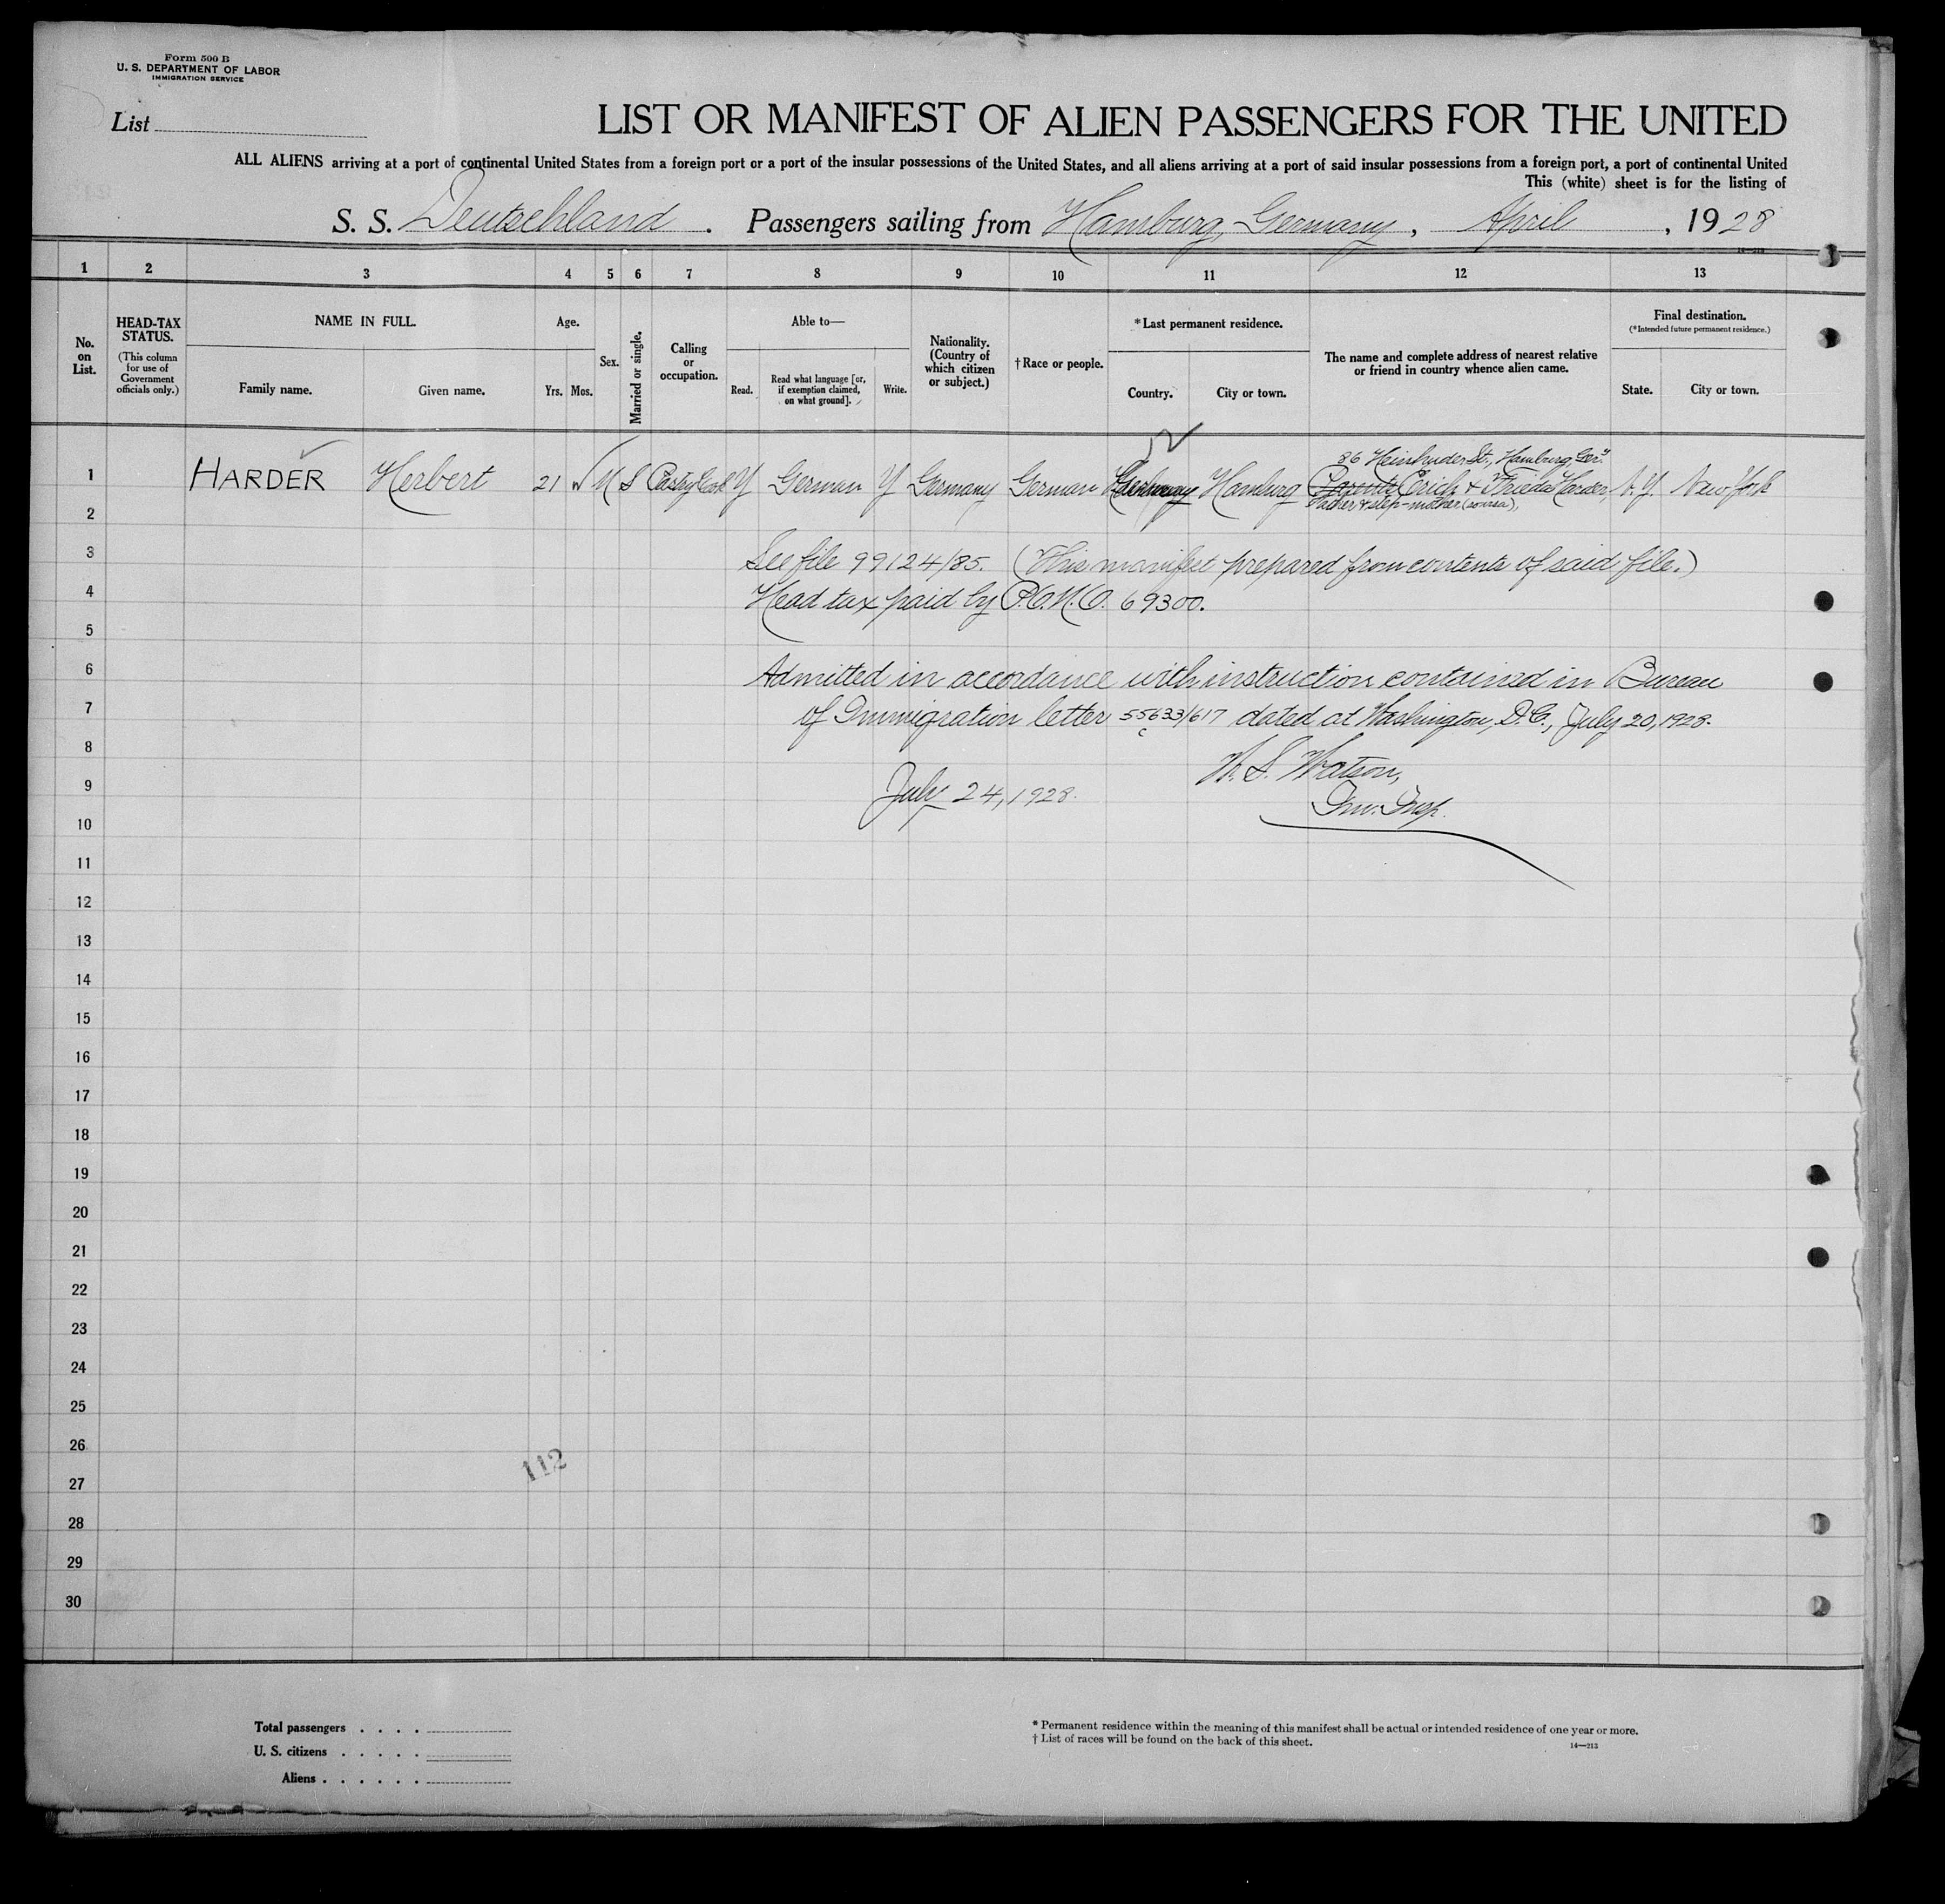 Form 500 B
U. S. DEPARTMENT OF LABOR
IMMIGRATION SERVICE
List
LIST OR MANIFEST OF ALIEN PASSENGERS FOR THE UNITED
ALL ALIENS arriving at a port of continental United States from a foreign port or a port of the insular possessions of the United States, and all aliens arriving at a port of said insular possessions from a foreign port, a port of continental United
This (white) sheet is for the listing of
S. S. Deutschland . Passengers sailing from Hamburg, Germany , April , 1928
1 2 3 4 5 6 7 8 9 10 11 12 13
No. on List.
HEAD-TAX STATUS.
(This column for use of Government officials only.)
NAME IN FULL.
Family name. Given name.
Age.
Yrs. Mos.
Sex.
Married or single.
Calling or occupation.
Able to—
Read. Read what language [or, if exemption claimed, on what ground]. Write.
Nationality. (Country of which citizen or subject.)
†Race or people.
*Last permanent residence.
Country. City or town.
The name and complete address of nearest relative or friend in country whence alien came.
Final destination.
(*Intended future permanent residence.)
State. City or town.
86 St., Hamburg, Ger'y
1 HARDER Herbert 21 M S Y German Y Germany German Germany Hamburg Parents Erich & Frieda Harder, N.Y. New York
Father & step-mother
2
3 See file 99124/85. (This manifest prepared from contents of said file.)
4 Head tax paid by 69300.
5
6 Admitted in accordance with instruction contained in Bureau
7 of Immigration letter 55633/617 dated at Washington, D.C., July 20, 1928.
8 W. S. Watson,
9 July 24, 1928. Imm. Insp.
10
11
12
13
14
15
16
17
18
19
20
21
22
23
24
25
26
112
27
28
29
30
Total passengers . . . .
U. S. citizens . . . . .
Aliens . . . . . .
* Permanent residence within the meaning of this manifest shall be actual or intended residence of one year or more.
† List of races will be found on the back of this sheet.
14—213